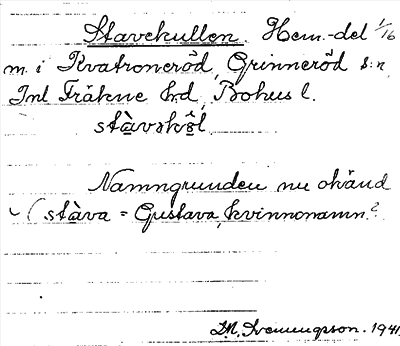 Stavekullen. Hem.-del 1/16
m. i Kvatroneröd, Grinneröd s:n
Inl Fräkne hd, Bohus l.
stàvəkö̀l
Namngrunden nu okänd
(stàva = Gustava, kvinnonamn?
1941